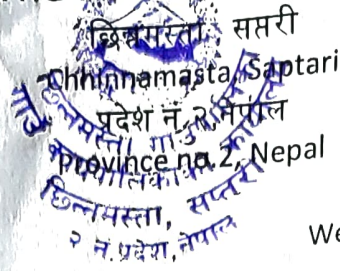 छिन्नमस्ता, सप्तरी
Chhinnamasta, Saptari
प्रदेश नं. २, नेपाल
Province no.2, Nepal
गाउँ कार्यपालिकाको
छिन्नमस्ता गाउँ
छिन्नमस्ता, सप्तरी
२ नं. प्रदेश, नेपाल
We